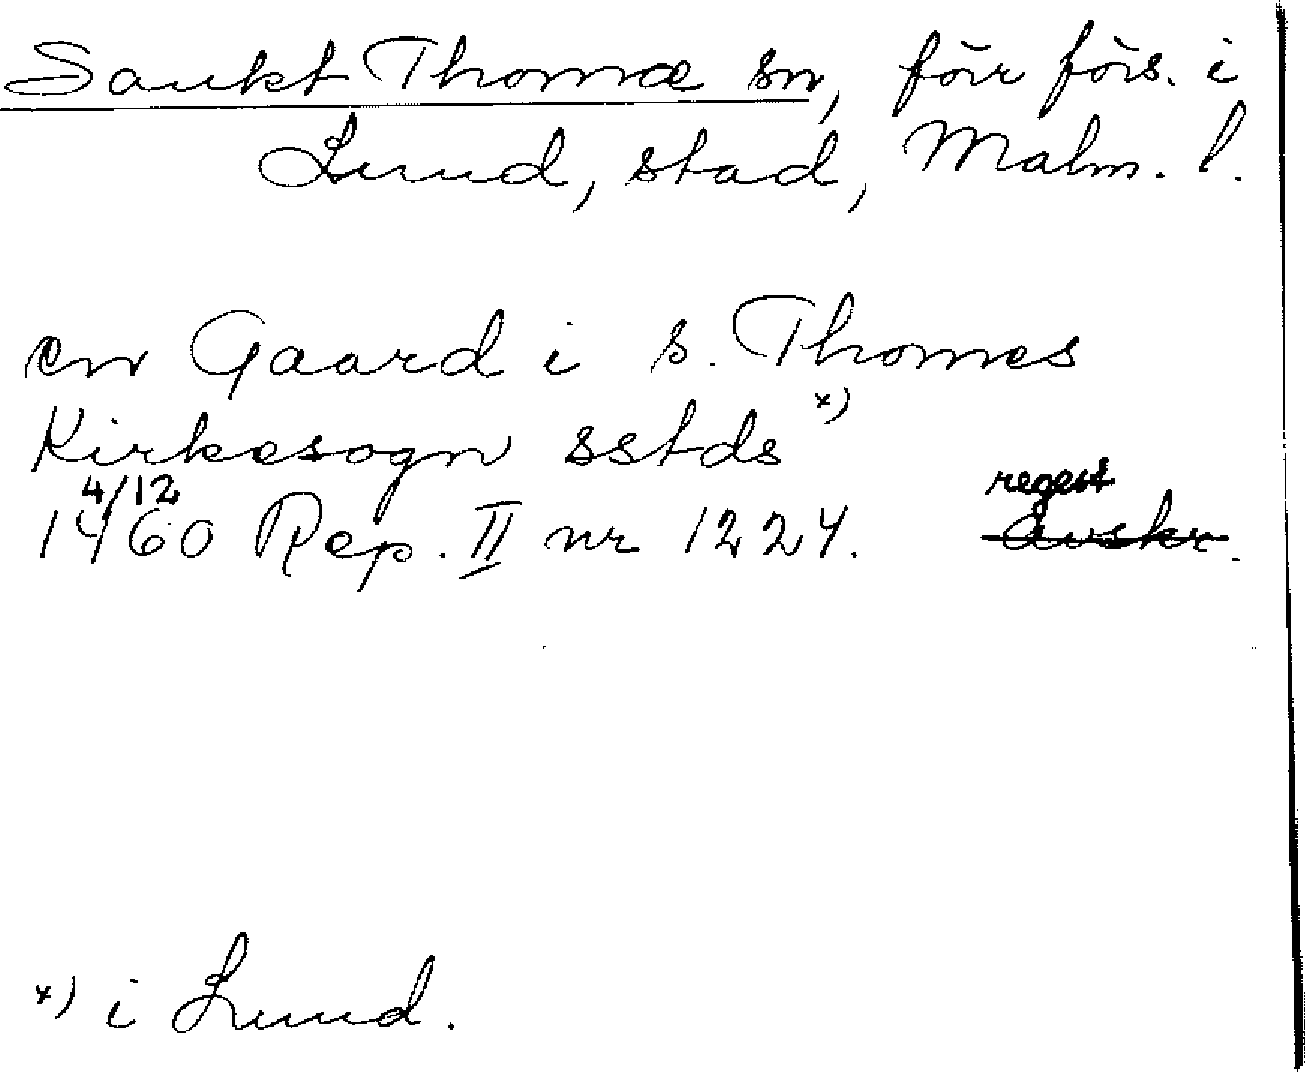 Sankt Thomæ sn, förr förs. i
Lund, stad, Malm. l.
en Gaard i s. Thomes
Kirkesogn sstds x)
4/12 regest
1460 Rep. II nr 1224. Avskr.
x) i Lund.